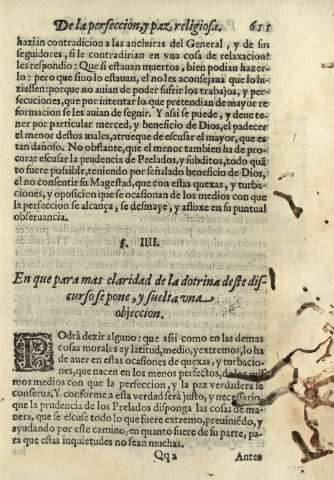 De la perfeccion, y paz religiosa. 611
hazian contradicion a las anchuras del General, y de sus
seguidores, si le contradirian en vna cosa de relaxacion:
les respondio: Que si estauan muertos, bien podian hazer
lo: pero que sino lo estauan, el no les aconsejaua que lo hi
ziessen: porque no auian de poder sufrir los trabajos, y per
secuciones, que por intentar lo que pretendian de mayor re
formacion se les auian de seguir. Y assi se puede, y deue te
ner por particular merced, y beneficio de Dios, el padecer
el menor destos males, atrueque de escusar el mayor, que es
tan dañoso. No obstante, que el menor tambien ha de pro
curar escusar la prudencia de Prelados, y subditos, todo quã
to fuere possible, teniendo por señalado beneficio de Dios,
el no consentir su Magestad, que con estas quexas, y turba-
ciones, y oposicion que se ocasionan de los medios con que
la perfeccion se alcança, se desmaye, y afloxe en su puntual
obseruancia.
§. IIII.
En que para mas claridad de la dotrina deste dis
curso se pone, y suelta vna
objeccion.
POdrà dezir alguno: que assi como en las demas
cosas morales ay latitud, medio, y extremo, lo ha
de auer en estas ocasiones de quexas, y turbacio-
nes, que nacen en los menos perfectos, de los mis
mos medios con que la perfeccion, y la paz verdadera se
conserua. Y conforme a esta verdad serà justo, y necessario,
que la prudencia de los Prelados disponga las cosas de ma-
nera, que se escuse todo lo que fuere extremo, preuiniẽdo, y
ayudando por este camino, en quanto fuere de su parte, pa-
ra que estas inquietudes no sean muchas.
Qq 2 Antes